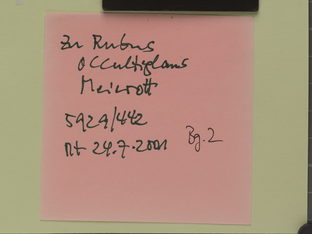 Zu Rubus
occultiglans
Meierott
5929/442
Mt 24.7.2001
Bg. 2